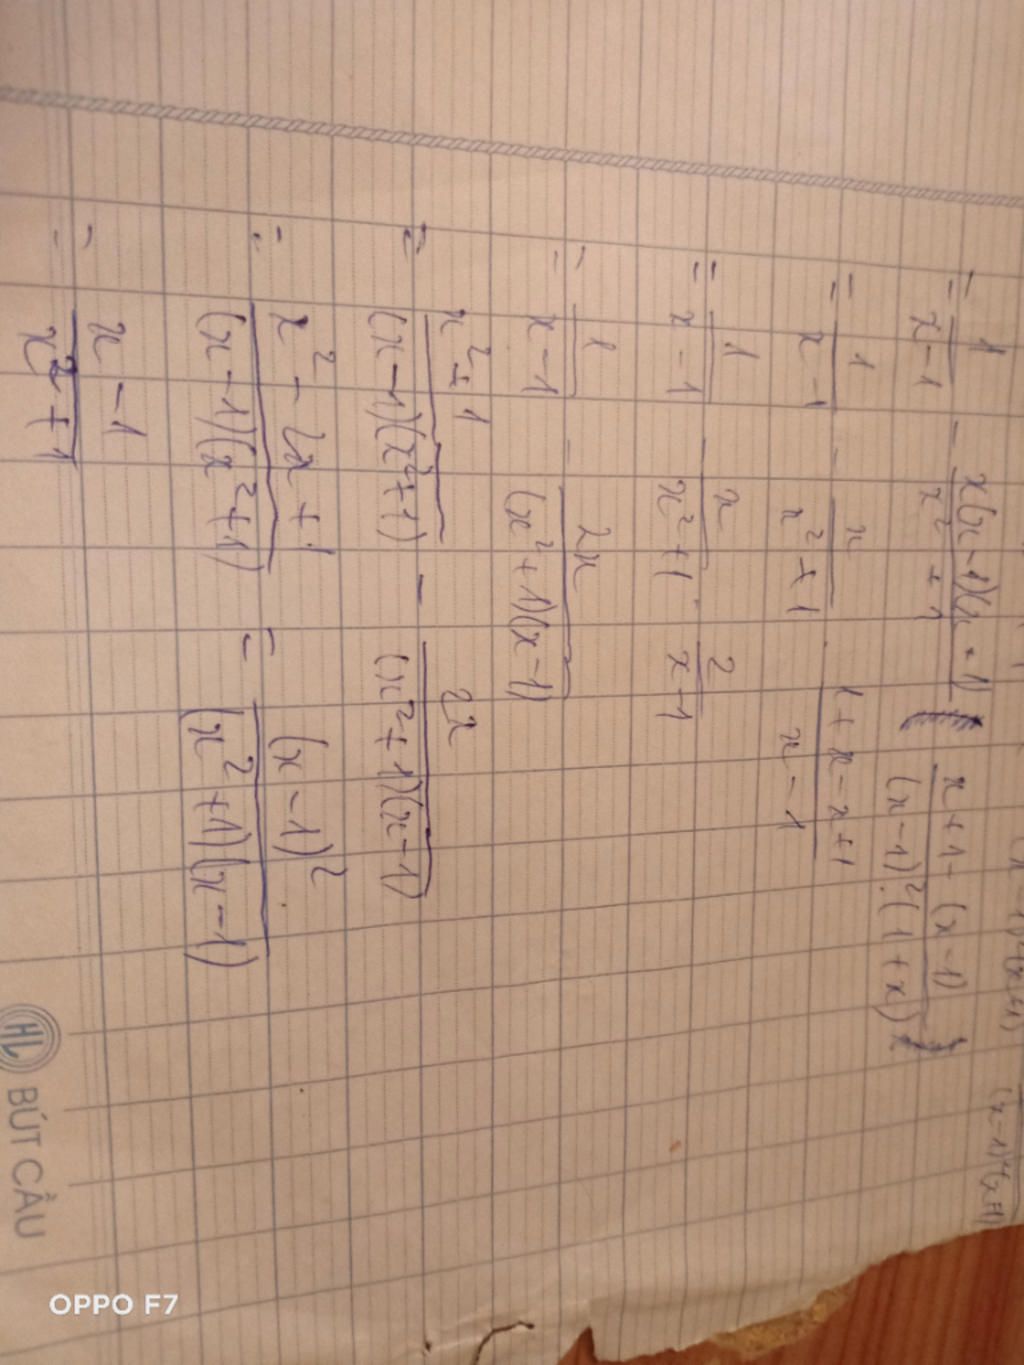 (x-1)²(x+1)
(x-1)²(x+1)
= 1/(x-1) - x(x-1)(x+1)/(x²+1) · (x+1-(x-1))/((x-1)²·(1+x))
= 1/(x-1) - x/(x²+1) · (1+x-x+1)/(x-1)
= 1/(x-1) - x/(x²+1) · 2/(x-1)
= 1/(x-1) - 2x/((x²+1)(x-1))
= (x²+1)/((x-1)(x²+1)) - 2x/((x²+1)(x-1))
= (x²-2x+1)/((x-1)(x²+1)) = (x-1)²/((x²+1)(x-1))
= (x-1)/(x²+1)
HL BÚT CẦU
OPPO F7